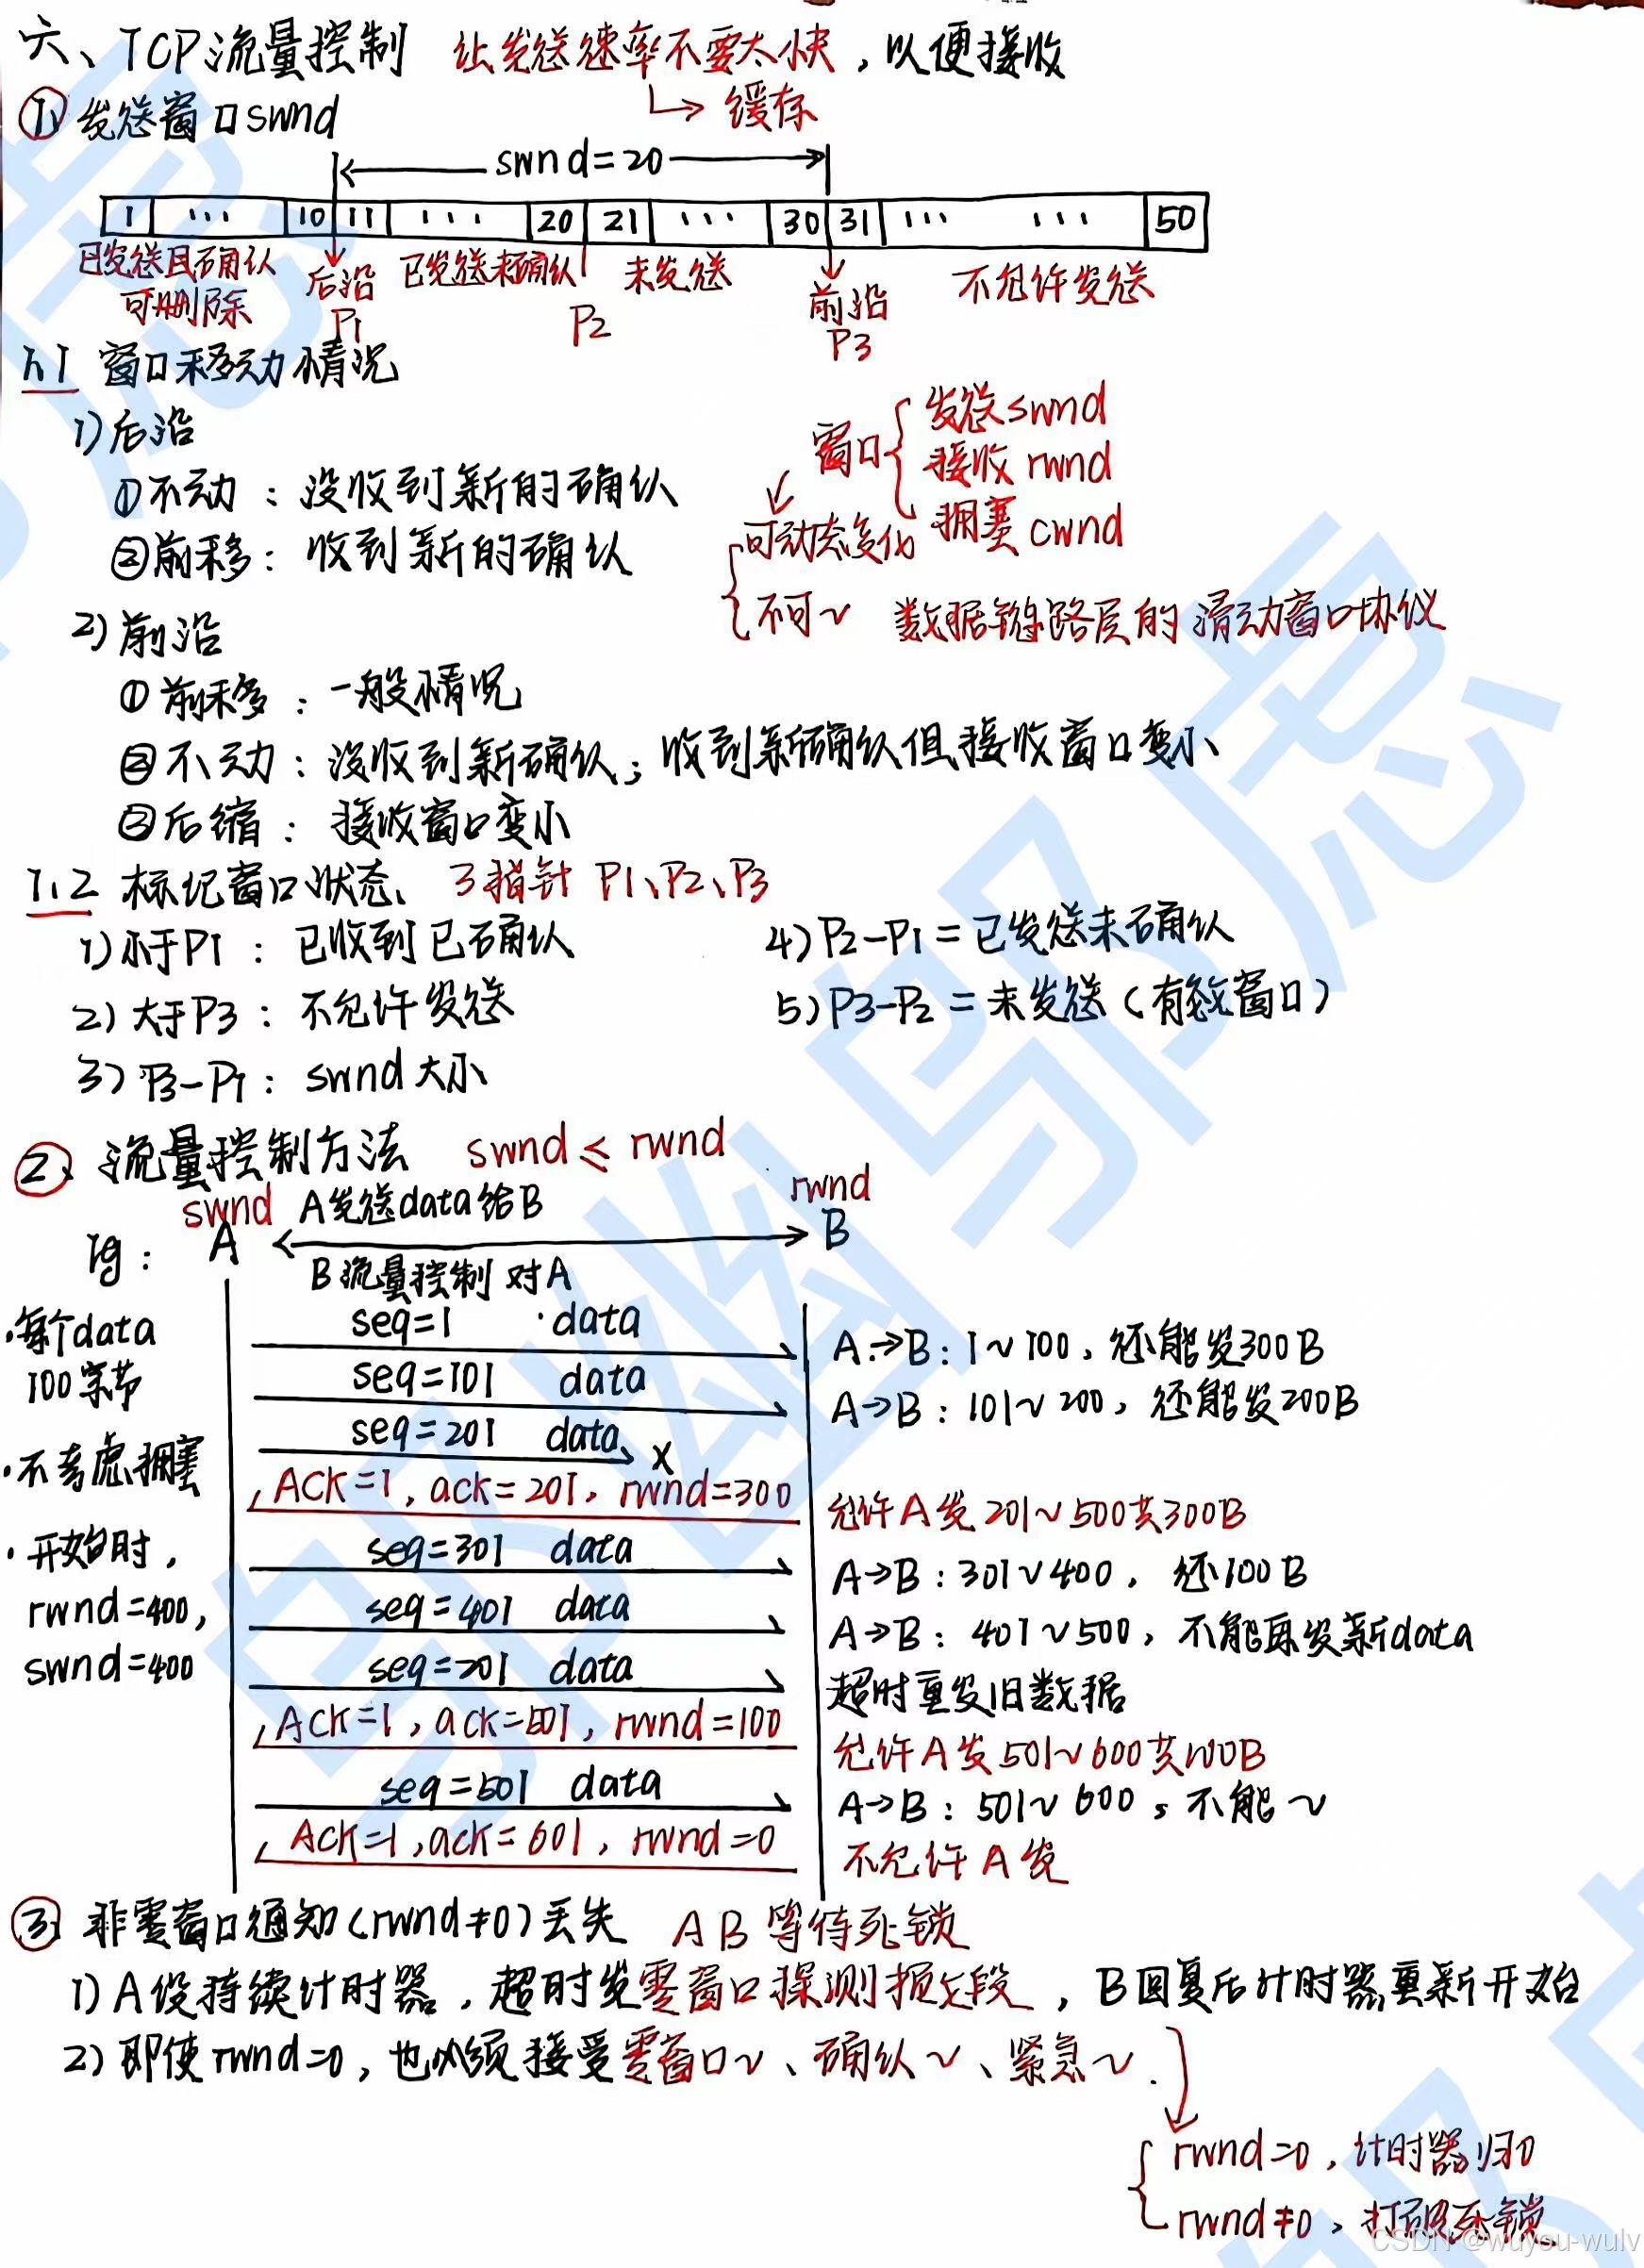 六、TCP流量控制 让发送速率不要太快，以便接收
↳ 缓存
① 发送窗口swnd
swnd=20
1 ··· 10 11 ··· 20 21 ··· 30 31 ··· ··· 50
已发送且确认 后沿 已发送未确认 未发送 前沿 不允许发送
可删除 P1 P2 P3
1.1 窗口移动情况
1)后沿
①不动：没收到新的确认
②前移：收到新的确认
窗口 { 发送swnd
接收rwnd
拥塞cwnd
可动态变化
不可~ 数据链路层的滑动窗口协议
2)前沿
①前移：一般情况
②不动：没收到新确认；收到新确认但接收窗口变小
③后缩：接收窗口变小
1.2 标记窗口状态 3指针 P1、P2、P3
1)小于P1：已收到已确认 4)P2-P1=已发送未确认
2)大于P3：不允许发送 5)P3-P2=未发送(有效窗口)
3)P3-P1：swnd大小
② 流量控制方法 swnd≤rwnd
swnd A发送data给B rwnd
eg： A B
B流量控制对A
·每个data
100字节
·不考虑拥塞
·开始时，
rwnd=400,
swnd=400
seq=1 data A→B：1~100，还能发300B
seq=101 data A→B：101~200，还能发200B
seq=201 data x
ACK=1, ack=201, rwnd=300 允许A发201~500共300B
seq=301 data A→B：301~400，还100B
seq=401 data A→B：401~500，不能再发新data
seq=201 data 超时重发旧数据
ACK=1, ack=501, rwnd=100 允许A发501~600共100B
seq=501 data A→B：501~600，不能~
ACK=1, ack=601, rwnd=0 不允许A发
③ 非零窗口通知(rwnd≠0)丢失 AB等待死锁
1)A设持续计时器，超时发零窗口探测报文段，B回复后计时器重新开始
2)即使rwnd=0，也必须接受零窗口~、确认~、紧急~.
{ rwnd=0，计时器归0
rwnd≠0，打破死锁
CSDN @wuyou-wulv